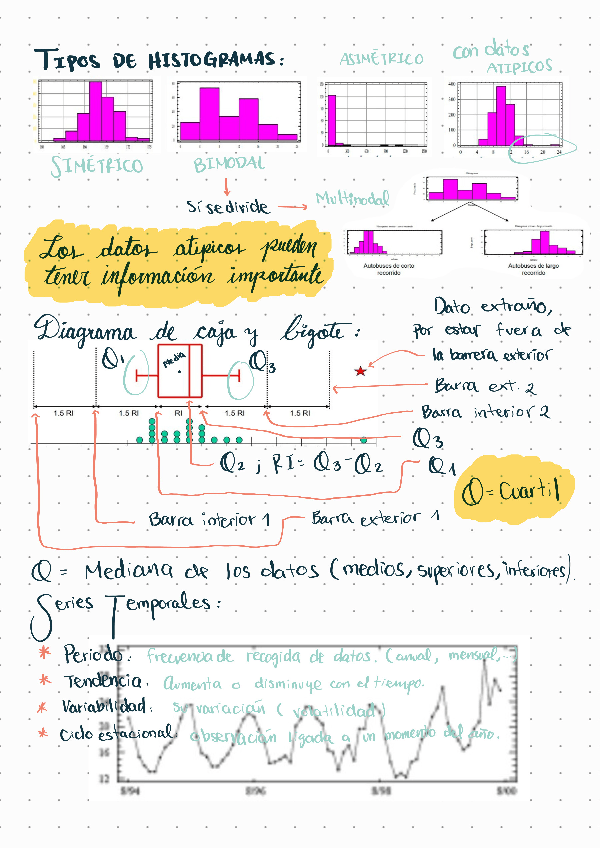 TIPOS DE HISTOGRAMAS:
ASIMÉTRICO
con datos
ATIPICOS
SIMÉTRICO
BIMODAL
Si se divide
Multinodal
Autobuses de corto
recorrido
Autobuses de largo
recorrido
Los datos atipicos pueden
tener información importante
Diagrama de caja y bigote:
Dato extraño,
por estar fuera de
la barrera exterior
Q1
Media
Q3
Barra ext. 2
1.5 RI
1.5 RI
RI
1.5 RI
1.5 RI
Barra interior 2
Q3
Q2 ; RI = Q3 - Q2
Q1
Q = Cuartil
Barra interior 1
Barra exterior 1
Q = Mediana de los datos (medios, superiores, inferiores).
Series Temporales:
* Periodo: frecuencia de recogida de datos. (anual, mensual,...
* Tendencia: Aumenta o disminuye con el tiempo.
* Variabilidad: Su variación (volatilidad)
* Ciclo estacional: observación ligada a un momento del año.
16
12
9/94
9/96
9/98
9/00